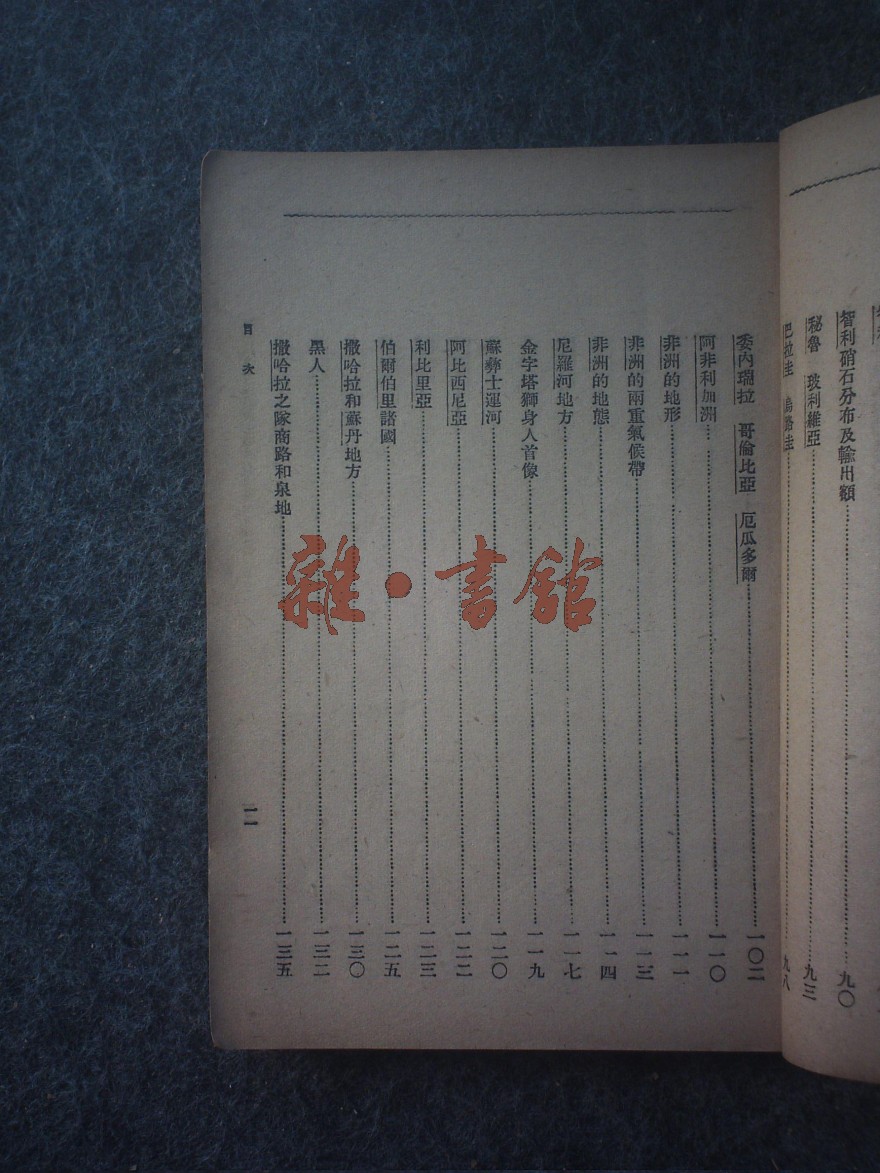 智利硝石分布及輸出額……九〇
秘魯 玻利維亞……九三
巴拉圭 烏路圭……九八
委內瑞拉 哥倫比亞 厄瓜多爾……一〇二
阿非利加洲……一一〇
非洲的地形……一一一
非洲的兩重氣候帶……一一三
非洲的地態……一一四
尼羅河地方……一一七
金字塔獅身人首像……一一九
蘇彝士運河……一二〇
阿比西尼亞……一二二
利比里亞……一二三
伯爾伯里諸國……一二五
撒哈拉和蘇丹地方……一三〇
黑人……一三二
撒哈拉之隊商路和泉地……一三五
目次
一一
雜·書館